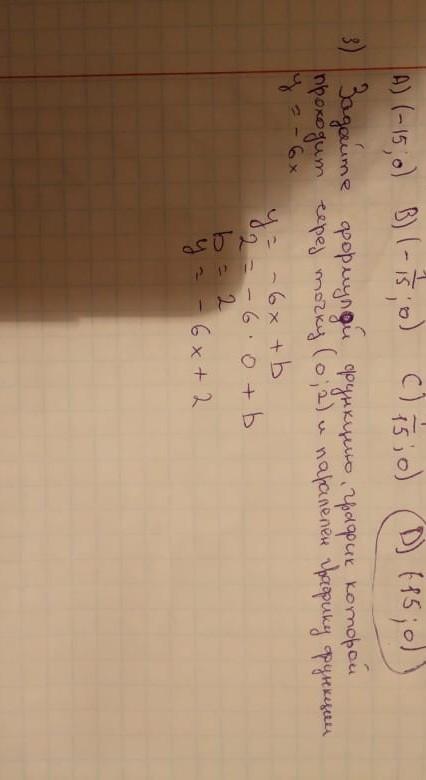 A) (-15; 0) B) (-1/15; 0) C) 1/15; 0) D) (-15; 0)
3) Задайте формулой функцию, график которой
проходит через точку (0; 2) и паралелен графику функции
y = -6x
y = -6x + b
2 = -6 · 0 + b
b = 2
y = -6x + 2